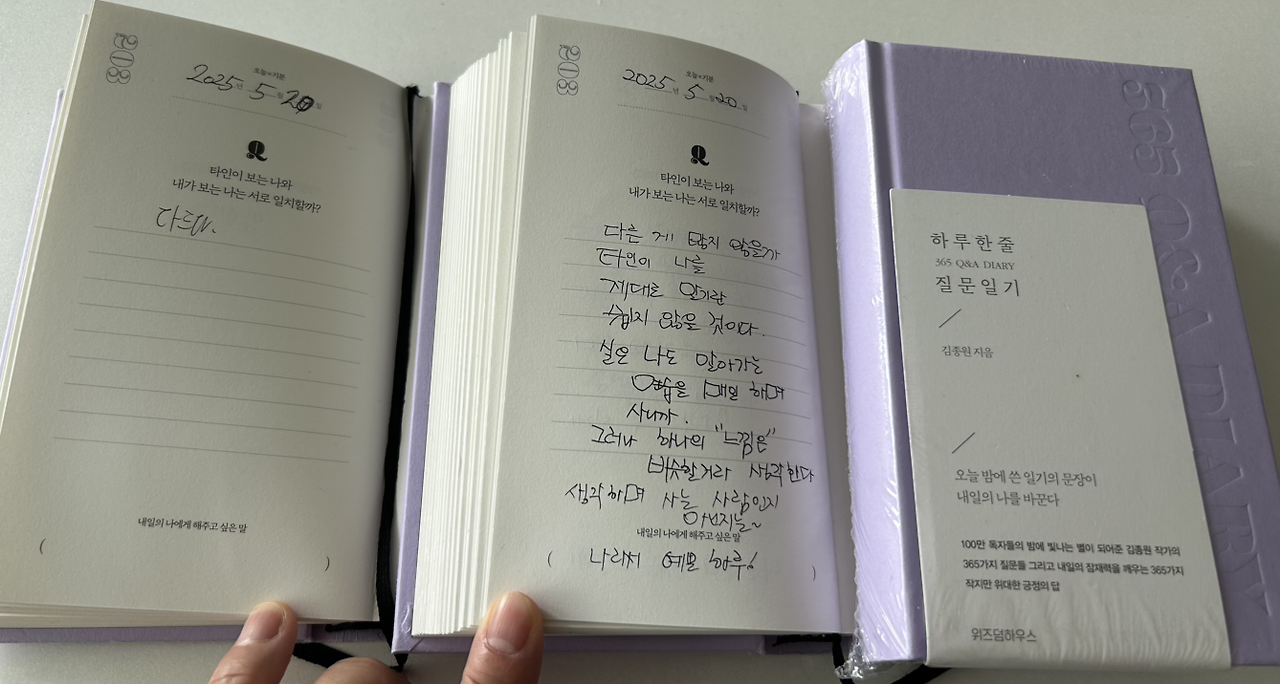 오늘의 기분
2025년 5월 20일
Q
타인이 보는 나와
내가 보는 나는 서로 일치할까?
다르다.
내일의 나에게 해주고 싶은 말
( )
오늘의 기분
2025년 5월 20일
Q
타인이 보는 나와
내가 보는 나는 서로 일치할까?
다른 게 많지 않을까
타인이 나를
제대로 알기란
쉽지 않을 것이다.
실은 나도 알아가는
연습을 매일 하며
사니까.
그러나 하나의 "느낌은"
비슷할거라 생각한다
생각하며 사는 사람인지
아닌지는~
내일의 나에게 해주고 싶은 말
( 나라서 예쁜 하루! )
365 Q&A DIARY
하루 한 줄
365 Q&A DIARY
질문 일기
김종원 지음
오늘 밤에 쓴 일기의 문장이
내일의 나를 바꾼다
100만 독자들의 밤에 빛나는 별이 되어준 김종원 작가의
365가지 질문들 그리고 내일의 잠재력을 깨우는 365가지
작지만 위대한 긍정의 답
위즈덤하우스